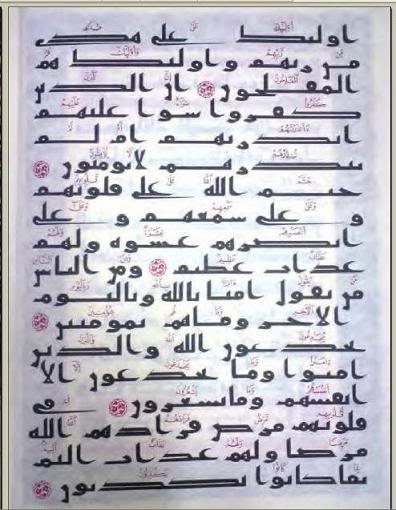 اولئك على هدى
من ربهم واولئك هم
المفلحون ان الذين
كفروا سوا عليهم
انذرتهم ام لم
تنذرهم لا يومنون
ختم الله على قلوبهم
و على سمعهم و على
ابصرهم غشوه ولهم
عذاب عظيم ومن الناس
من يقول امنا بالله وباليوم
الاخر وما هم بمومنين
يخدعون الله والذين
امنوا وما يخدعون الا
انفسهم وما يشعرون في
قلوبهم مرض فزادهم الله
مرضا ولهم عذاب اليم
بما كانوا يكذبون